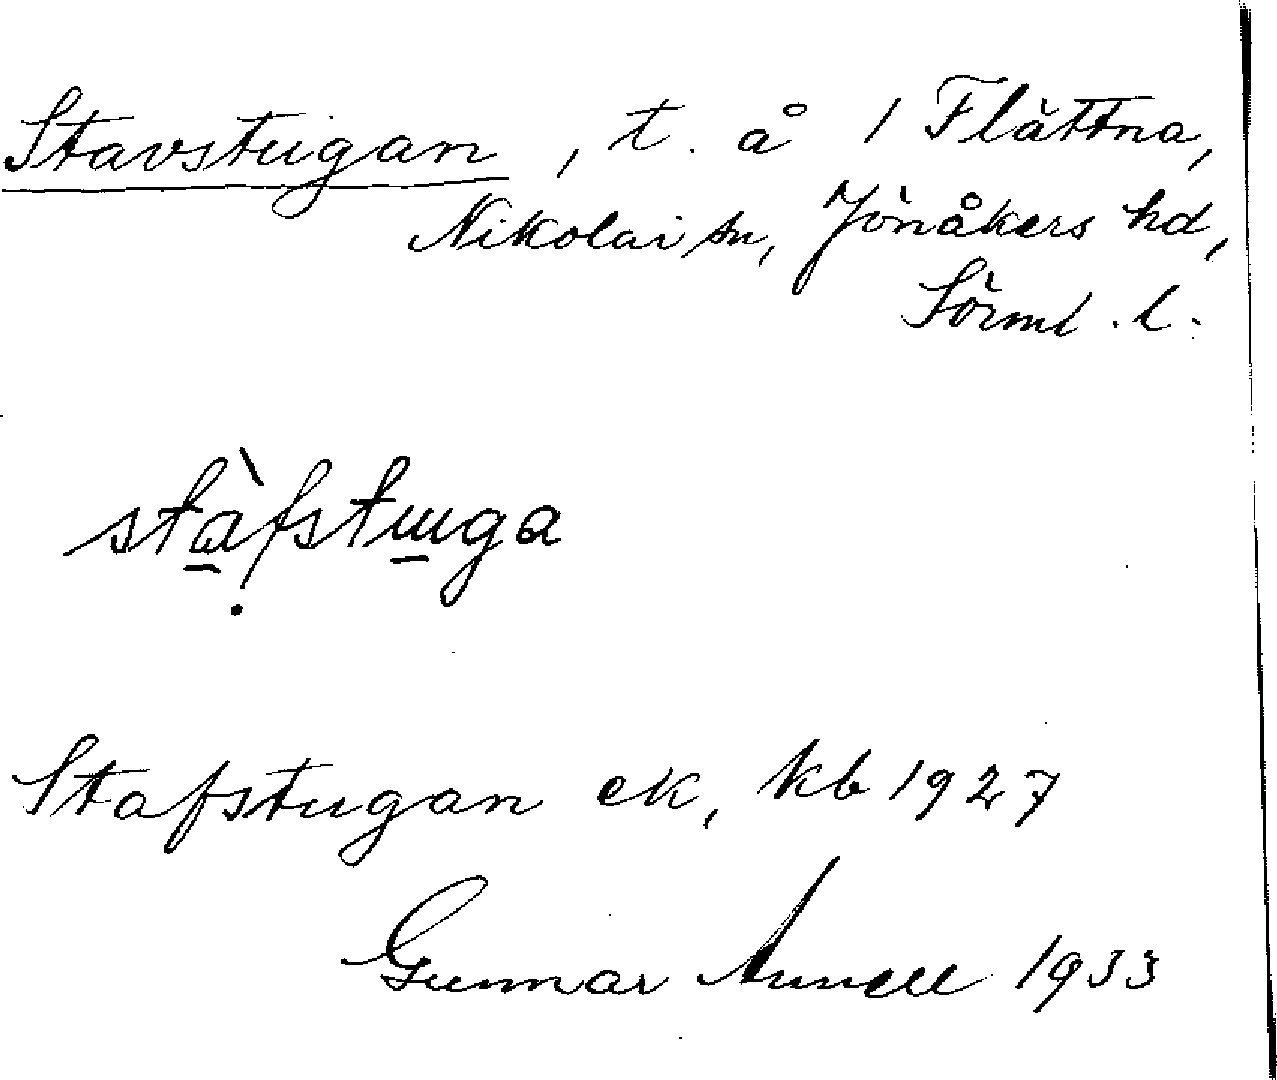 Stavstugan, t. å 1 Flättna,
Nikolai sn, Jönåkers hd,
Sörml. l.
stàfstɯga
Stafstugan ek, kb 1927
Gunnar Annell 1933